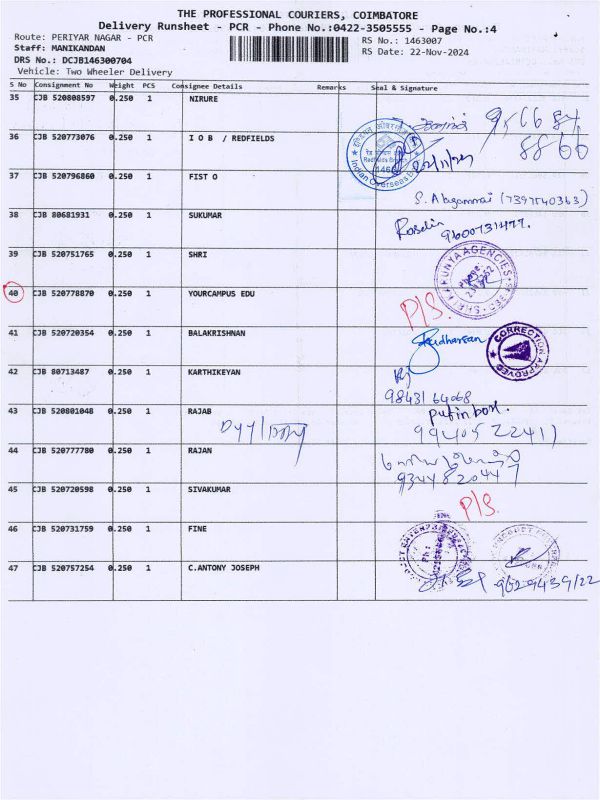 THE PROFESSIONAL COURIERS, COIMBATORE
Delivery Runsheet - PCR - Phone No.:0422-3505555 - Page No.:4
Route: PERIYAR NAGAR - PCR RS No.: 1463007
Staff: MANIKANDAN RS Date: 22-Nov-2024
DRS No.: DCJB146300704
Vehicle: Two Wheeler Delivery
S No Consignment No Weight PCS Consignee Details Remarks Seal & Signature
35 CJB 520808597 0.250 1 NIRURE
36 CJB 520773076 0.250 1 I O B / REDFIELDS
8866
Redfields Branch
1460
Indian Overseas
37 CJB 520796860 0.250 1 FIST O
S. Alagammai (7397540363)
38 CJB 80681931 0.250 1 SUKUMAR
Roselin
9600731477.
39 CJB 520751765 0.250 1 SHRI
AGENCIES
40 CJB 520778870 0.250 1 YOURCAMPUS EDU
P/S
41 CJB 520720354 0.250 1 BALAKRISHNAN
Sudharsan
CORRECTION APPROVED
42 CJB 80713487 0.250 1 KARTHIKEYAN
9843164068
43 CJB 520801048 0.250 1 RAJAB
put in box.
9940522411
44 CJB 520777780 0.250 1 RAJAN
9344820447
45 CJB 520720598 0.250 1 SIVAKUMAR
P/S.
46 CJB 520731759 0.250 1 FINE
47 CJB 520757254 0.250 1 C.ANTONY JOSEPH
9629439122